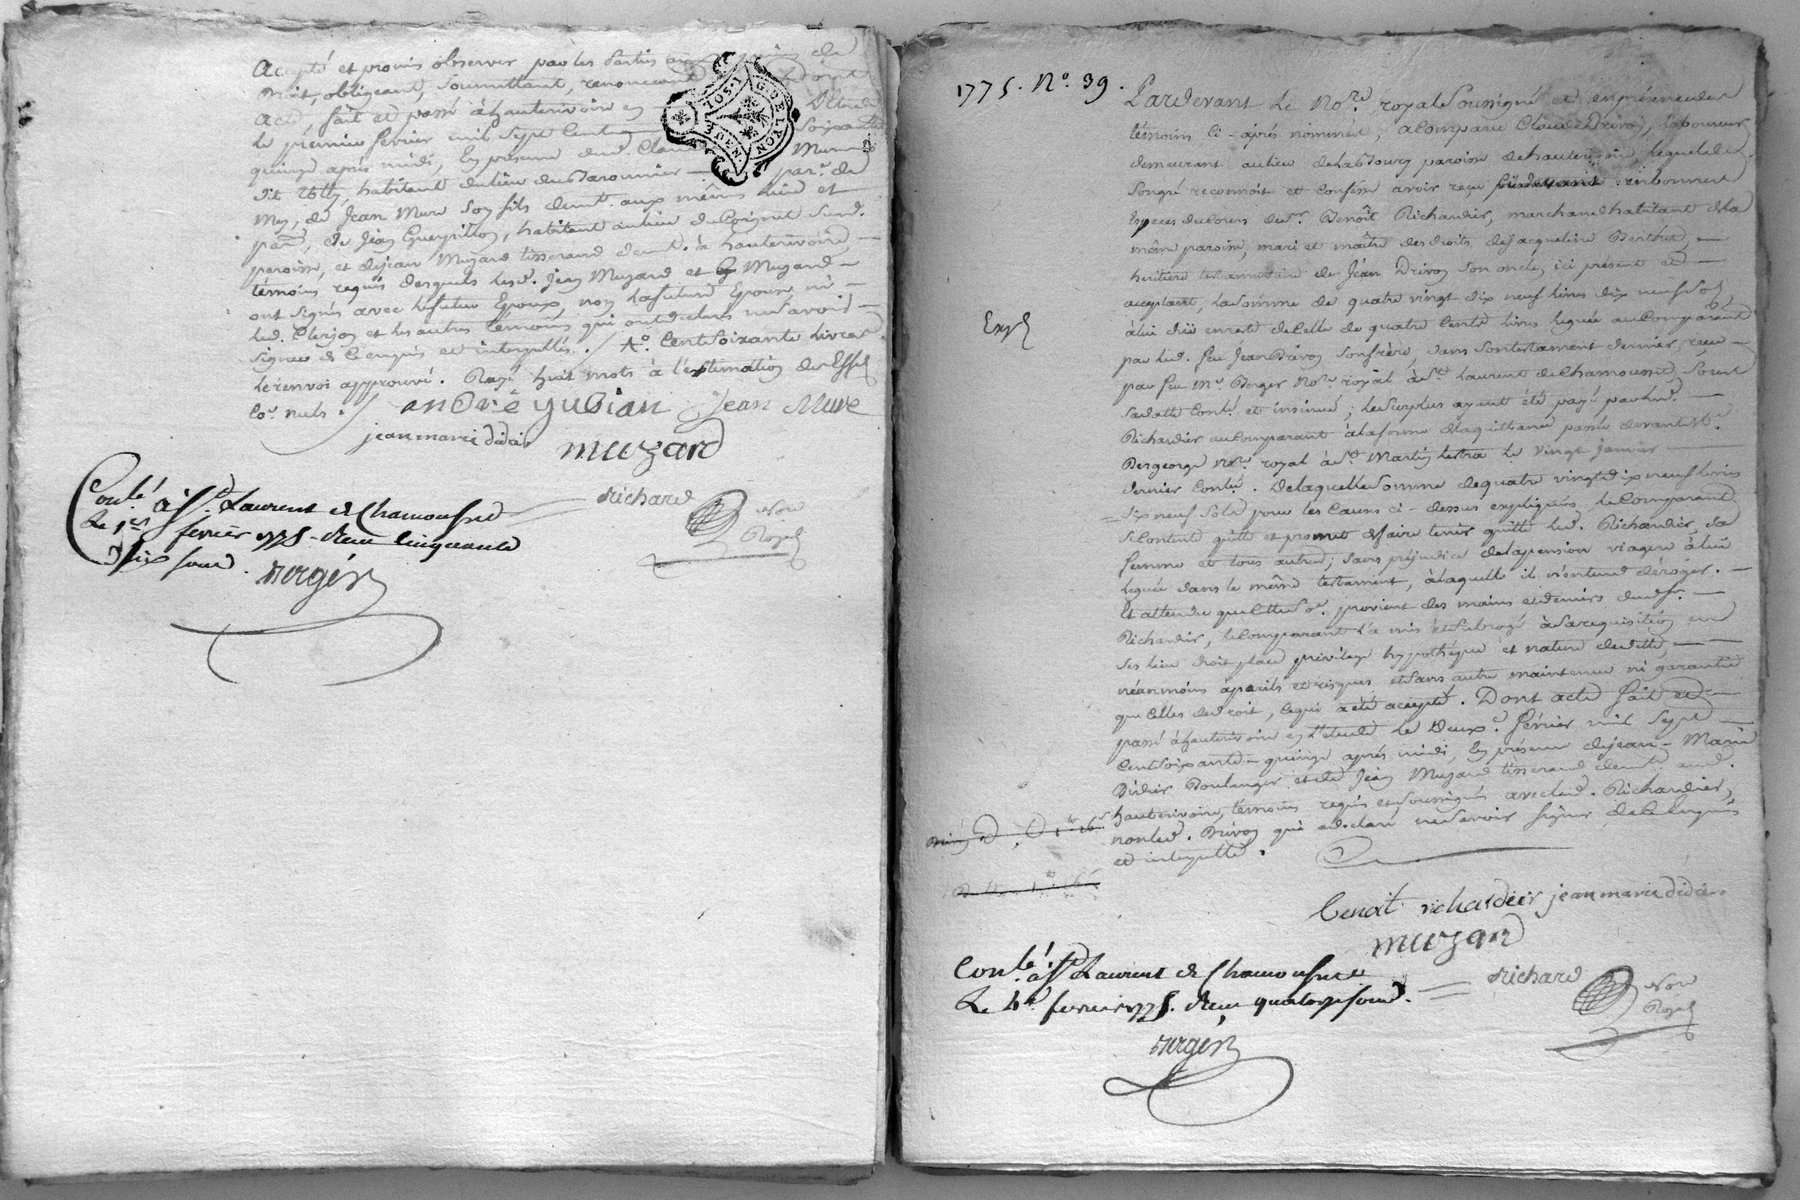 accepté et promis observer par les parties aux peines de
droit, obligeant, soumettant, renonceant Dont
acte fait et passé à hauterivoire en l'etude
le premier fevrier mil sept cent soixante
quinze après midi, en présence de Mure
dit habitant du lieu du par. de
Mey, de Jean Mure son fils demt. aux mêmes lieu et
par., de Jean habitant au lieu de
paroisse, et de jean Muzard tisserand demt. à hauterivoire,
témoins requis desquels led. Jean Mure et led. Muzard
ont signés avec le futur Epoux, non la future Epouse ni
led. et les autres témoins qui ont déclaré ne savoir
signer de ce enquis et interpellés. / A.° Cent soixante livres
le renvoi approuvé. Rayé huit mots à l'estimation des
co. nuls.
andré gubian Jean Mure
jean marie didier
muzard
richard Nore Royal
Conlé. à St. Laurent de Chamousset
Le 1er fevrier 1775. Reçu cinquante
six sous.
Berger
105.I GUE LYON DEN
1775. N.° 39.
Pardevant Le No.re royal soussigné et en présence des
témoins ci-après nommés, a comparu Claude Drivon, laboureur
demeurant au lieu de paroisse de hauterivoire, lequel de
son gré reconnoit et confesse avoir reçu en bonnes
Especes du cours de sr. Benoît Richardier, marchand habitant de la
même paroisse, mari et maître des droits de jacqueline Berthet,
heritière testamentaire de Jean Drivon son oncle, ici présent et
acceptant, la somme de quatre vingt dix neuf livres dix neuf sols
à lui düe en reste de celle de quatre cents livres leguée au comparant
par led. feu Jean Drivon son frère, dans son testament dernier, reçu
par feu Me. Berger No.re royal à St. Laurent de Chamousset,
Contlé. et insinué; le surplus ayant été payé par led.
Richardier au comparant à la forme de la quittance passée devant Me.
Desgeorge no.re royal à St. Martin Lestra le vingt janvier
dernier Contlé. De laquelle somme de quatre vingt dix neuf livres
dix neuf sols pour les causes ci-dessus expliquées, le comparant
se contente quitte et promet de faire tenir quitte led. Richardier, sa
femme et tous autres; sans préjudice de la pension viagere à lui
leguée dans le même testament, à laquelle il n'entend déroger.
Et attendu que cette so.e provient des mains et deniers dud. sr.
Richardier, le comparant l'a mis et subrogé à sa requisition en
ses lieu droit place privilege hypotheque et nature de dette,
néanmoins à perils et risques et sans autre maintenue ni garantie
que celles de droit, ce qui a été accepté. Dont acte fait et
passé à hauterivoire en l'etude le deux.e février mil sept
cent soixante-quinze après midi, en présence de jean-Marie
Didier Boulanger et de Jean Muzard tisserand demts. aud.
hauterivoire, témoins requis et soussignés avec led. Richardier,
non led. Drivon qui a declaré ne savoir signer de ce enquis
et interpellé.
Exp.é
benoit richardier jean marie didier
muzard
richard Nore Royal
Conlé. à St. Laurent de Chamousset
Le 4e. fevrier 1775. Reçu quatorze sous.
Berger